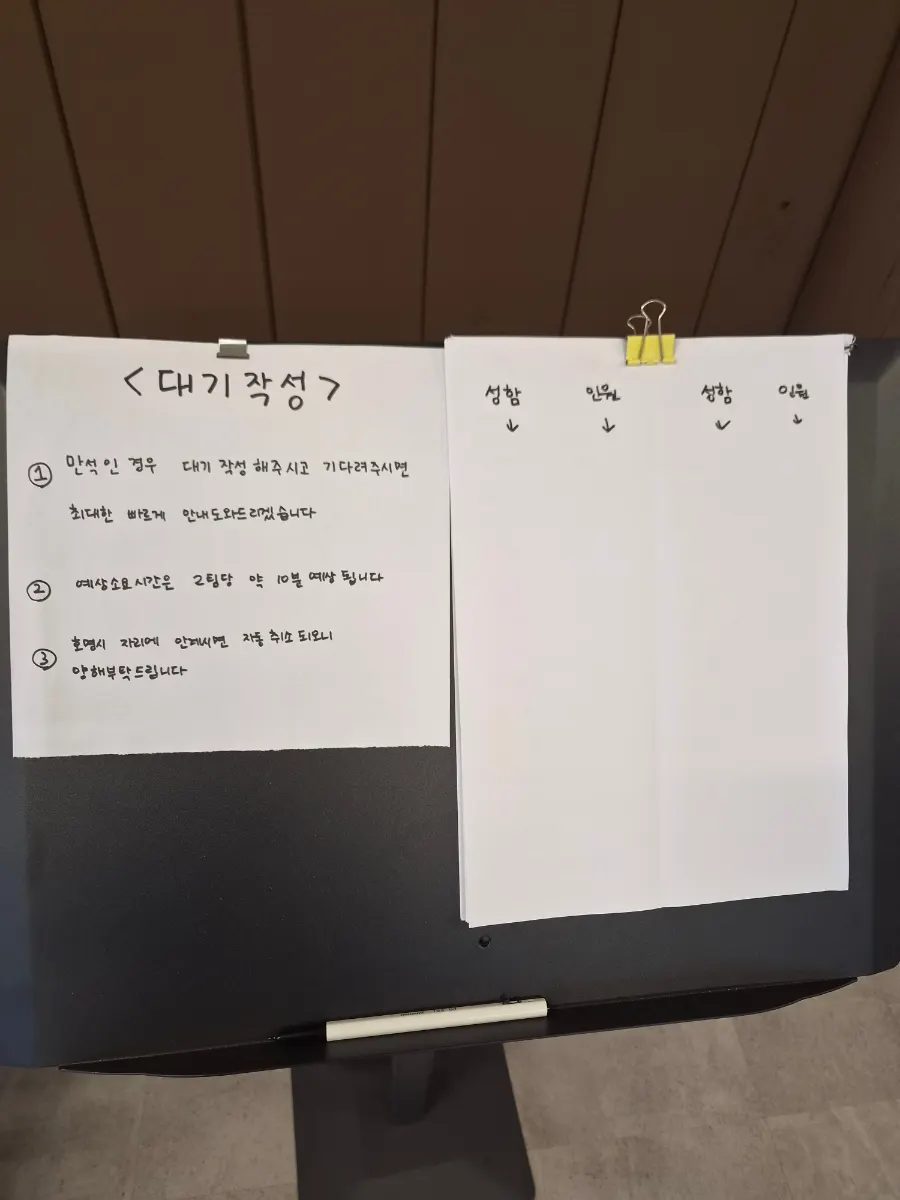 <대기작성>
① 만석인 경우 대기 작성해주시고 기다려주시면
최대한 빠르게 안내도와드리겠습니다
② 예상소요시간은 2팀당 약 10분 예상 됩니다
③ 호명시 자리에 안계시면 자동 취소 되오니
양해부탁드립니다
성함 인원 성함 인원
↓ ↓ ↓ ↓